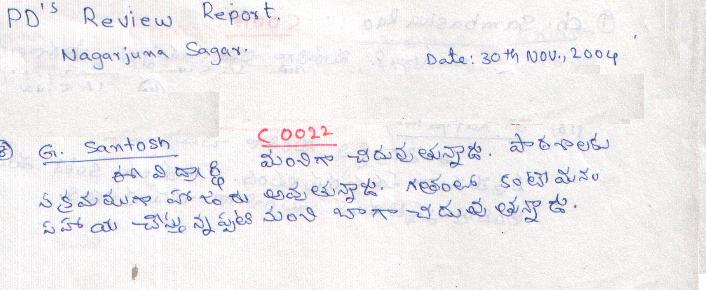 PD'S Review Report.
Nagarjuna Sagar.
Date: 30th NOV., 2004
G. Santosh C 0022
ఈ విద్యార్థి మంచిగా చదువుతున్నాడు. పాఠశాలకు
సక్రమముగా హాజరు అవుతున్నాడు. గతంలో కంటే మనం
సహాయ చేస్తున్నప్పటి మంచి బాగా చదువుతున్నాడు.